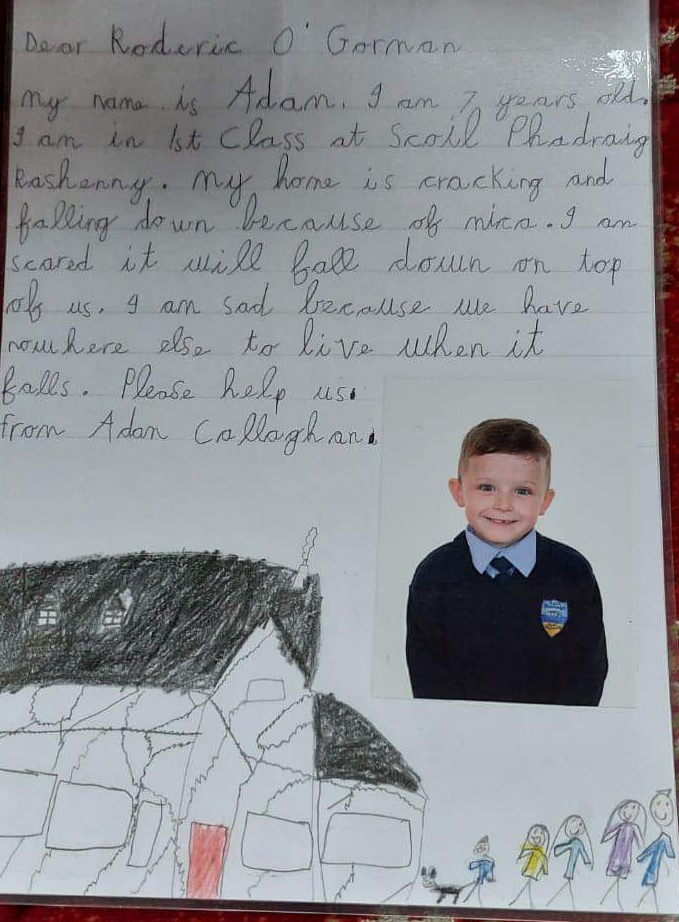 Dear Roderic O' Gorman
My name is Adam. I am 7 years old.
I am in 1st Class at Scoil Phadraig
Rashenny. My home is cracking and
falling down because of mica. I am
scared it will fall down on top
of us. I am sad because we have
nowhere else to live when it
falls. Please help us.
from Adam Callaghan.